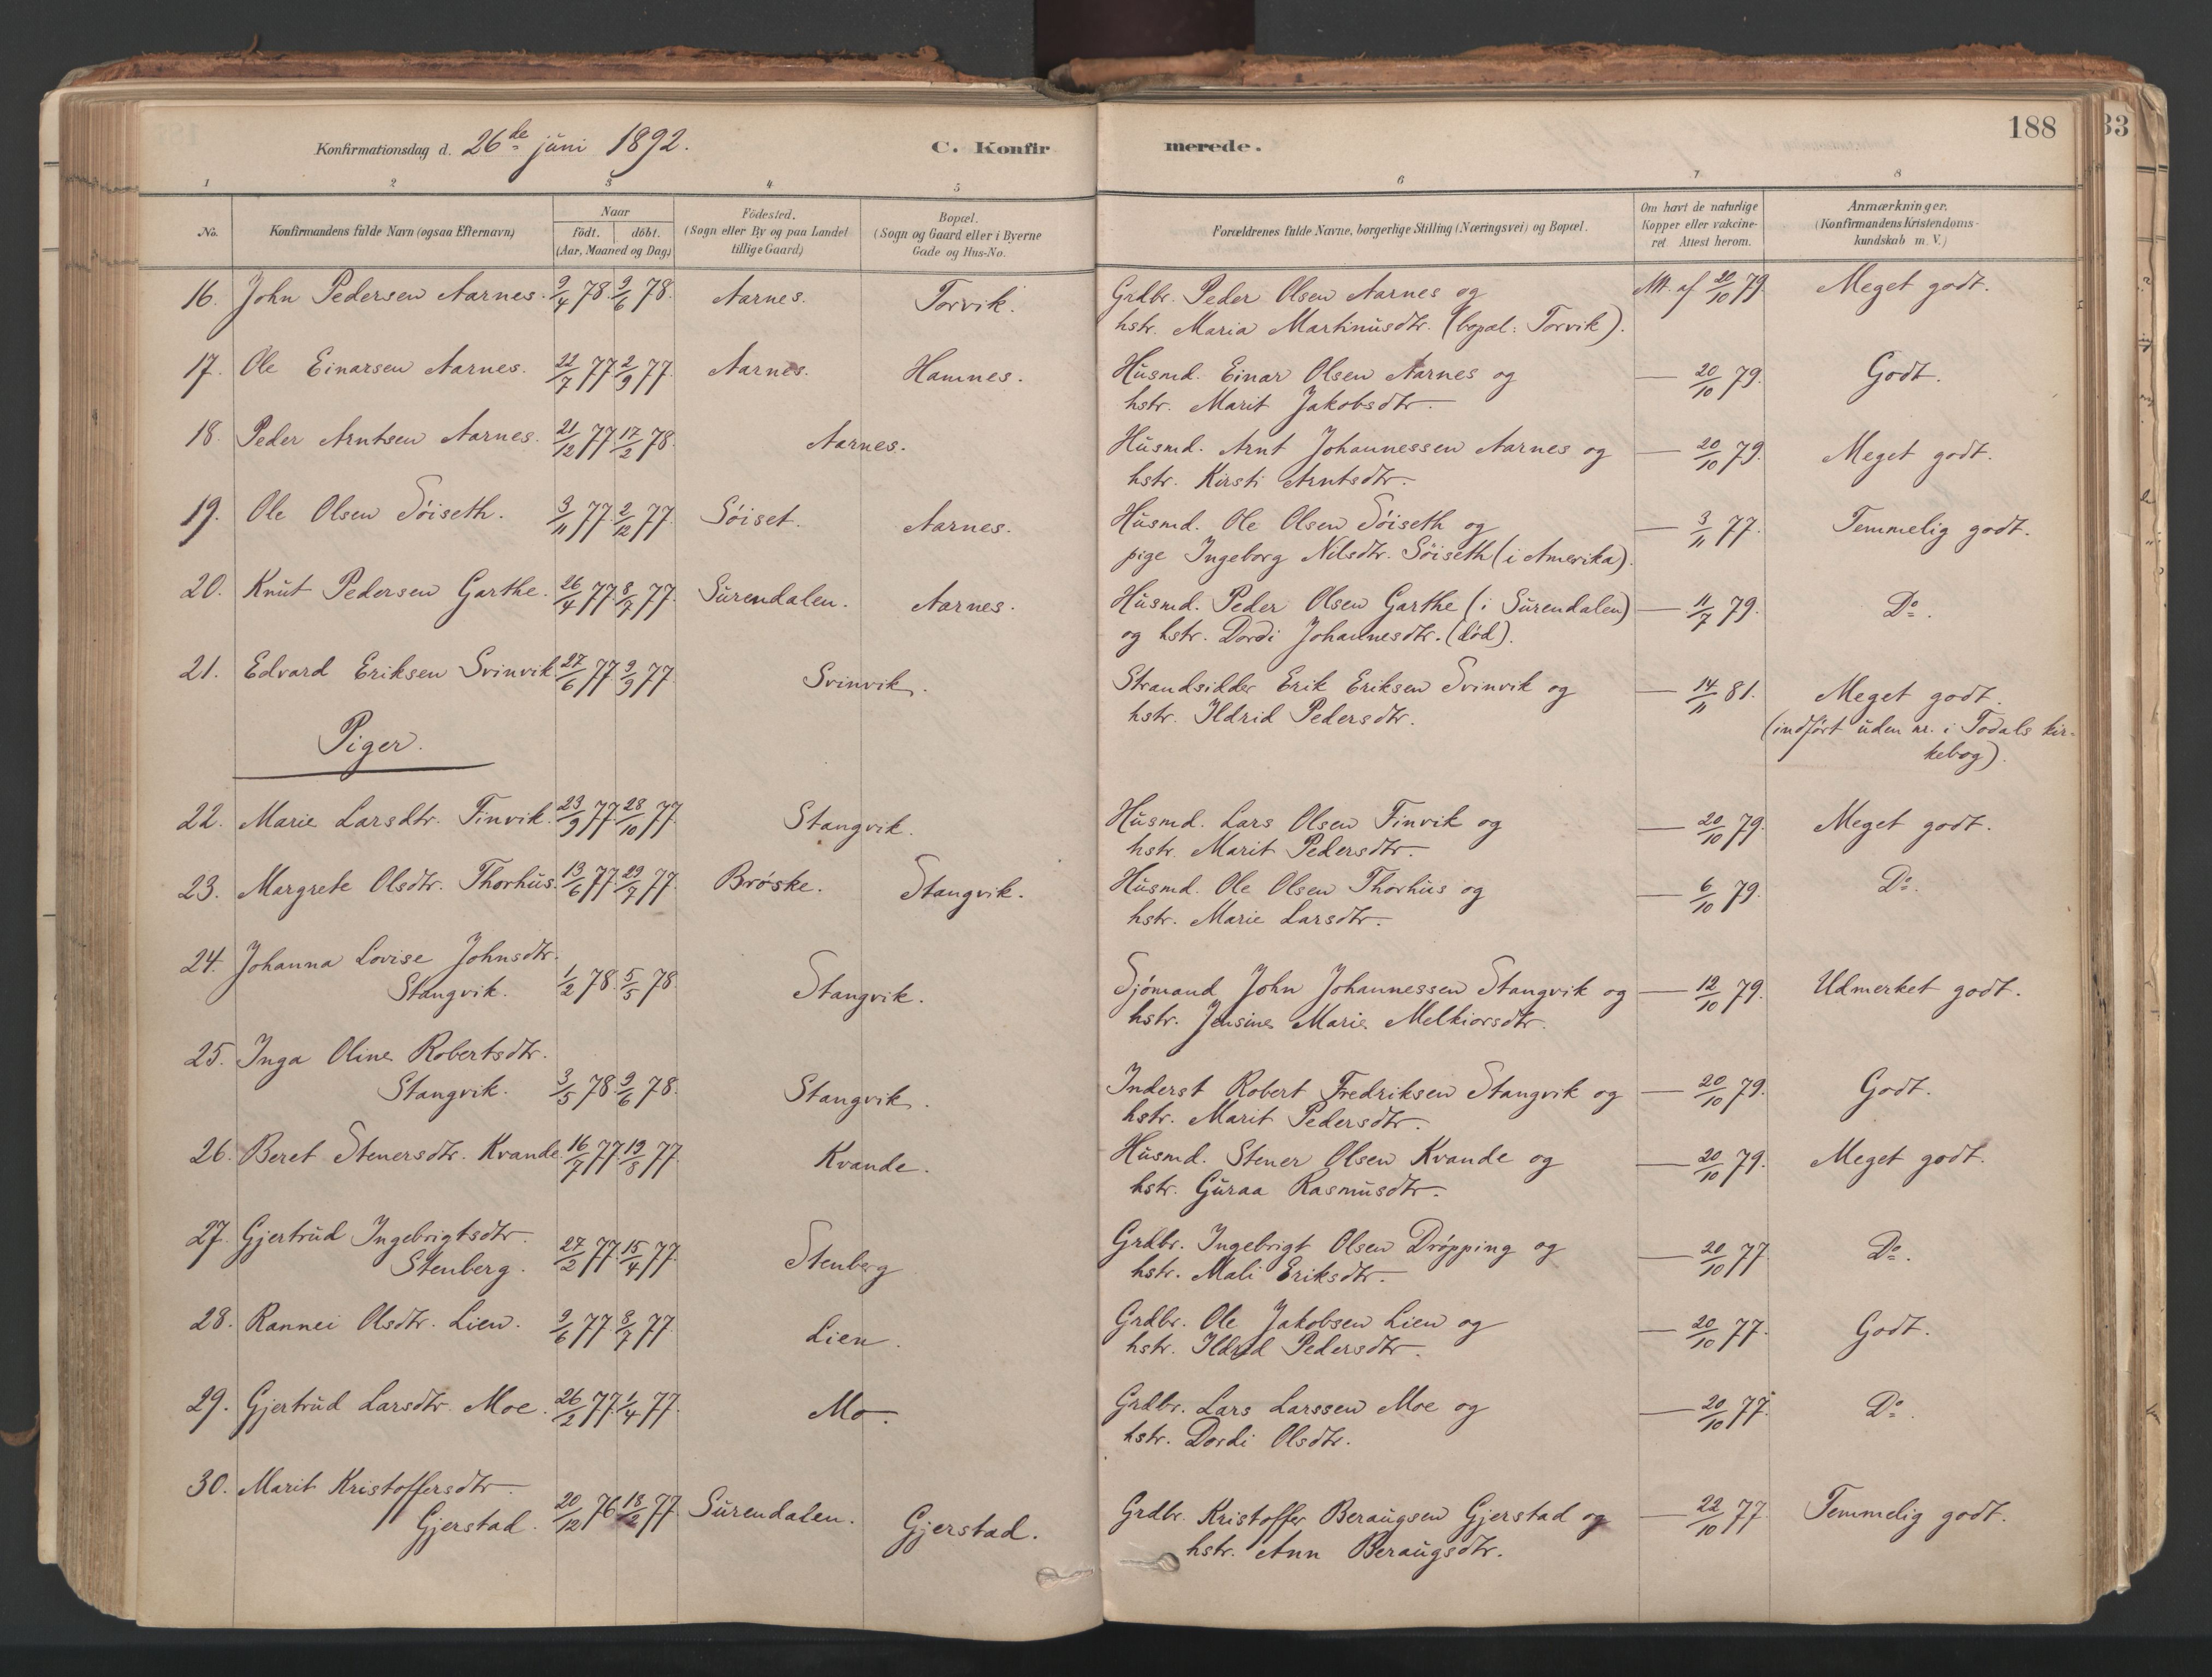 188
33
Konfirmationsdag d. 26de juni 1892.
C. Konfirmerede.
1 2 3 4 5 6 7 8
No.
Konfirmandens fulde Navn (ogsaa Efternavn)
Naar
födt. döbt.
(Aar, Maaned og Dag)
Födested.
(Sogn eller By og paa Landet
tillige Gaard)
Bopæl.
(Sogn og Gaard eller i Byerne
Gade og Hus-No.
Forældrenes fulde Navne, borgerlige Stilling (Næringsvei) og Bopæl.
Om havt de naturlige
Kopper eller vakcine-
ret Attest herom.
Anmærkninger.
(Konfirmandens Kristendoms-
kundskab m. V.)
16. John Pedersen Aarnes. 9/4 78. 9/6 78. Aarnes. Torvik. Grdbr. Peder Olsen Aarnes og Att. af 20/10 79 Meget godt.
hstr. Maria Martinusdtr. (bopæl: Torvik).
17. Ole Einarsen Aarnes. 22/7 77. 2/9 77. Aarnes. Hamnes. Husmd. Einar Olsen Aarnes og — 20/10 79. Godt.
hstr. Marit Jakobsdtr.
18. Peder Arntsen Aarnes. 21/12 77. 17/2 78. Aarnes. Husmd. Arnt Johannessen Aarnes og — 20/10 79. Meget godt.
hstr. Kirsti Arntsdtr.
19. Ole Olsen Söiseth. 3/11 77. 2/12 77. Söiset. Aarnes. Husmd. Ole Olsen Söiseth og — 3/11 77. Temmelig godt.
pige Ingeborg Nilsdtr. Söiseth (i Amerika).
20. Knut Pedersen Garthe. 26/4 77. 8/7 77. Surendalen. Aarnes. Husmd. Peder Olsen Garthe (i Surendalen) — 11/7 79. Do.
og hstr. Dordi Johannesdtr. (död).
21. Edvard Eriksen Svinvik. 27/6 77. 9/9 77. Svinvik. Strandsidder Erik Eriksen Svinvik og — 14/11 81. Meget godt.
hstr. Ildrid Pedersdtr. (indfört uden nr. i Todals kir-
kebog).
Piger.
22. Marie Larsdtr. Finvik. 23/9 77. 28/10 77. Stangvik. Husmd. Lars Olsen Finvik og — 20/10 79. Meget godt.
hstr. Marit Pedersdtr.
23. Margrete Olsdtr. Thorhus. 13/6 77. 29/7 77. Bröske. Stangvik. Husmd. Ole Olsen Thorhus og — 6/10 79. Do.
hstr. Marie Larsdtr.
24. Johanna Lovise Johnsdtr.
Stangvik. 1/2 78. 5/5 78. Stangvik. Sjömand John Johannessen Stangvik og — 12/10 79. Udmerket godt.
hstr. Jensine Marie Melkiorsdtr.
25. Inga Oline Robertsdtr.
Stangvik. 3/5 78. 9/6 78. Stangvik. Inderst Robert Fredriksen Stangvik og — 20/10 79. Godt.
hstr. Marit Pedersdtr.
26. Beret Stenersdtr. Kvande. 16/7 77. 19/8 77. Kvande. Husmd. Stener Olsen Kvande og — 20/10 79. Meget godt.
hstr. Guraa Rasmusdtr.
27. Gjertrud Ingebrigtsdtr.
Stenberg. 27/2 77. 15/4 77. Stenberg Grdbr. Ingebrigt Olsen Dröpping og — 20/10 77 Do.
hstr. Mali Eriksdtr.
28. Rannei Olsdtr. Lien. 9/6 77. 8/7 77. Lien. Grdbr. Ole Jakobsen Lien og — 20/10 77. Godt.
hstr. Ildrid Pedersdtr.
29. Gjertrud Larsdtr. Moe. 26/2 77. 1/4 77. Mo. Grdbr. Lars Larssen Moe og — 20/10 77. Do.
hstr. Dordi Olsdtr.
30. Marit Kristoffersdtr.
Gjerstad. 20/12 76. 18/2 77. Surendalen. Gjerstad. Grdbr. Kristoffer Beraugsen Gjerstad og — 22/10 77. Temmelig godt.
hstr. Ann Beraugsdtr.